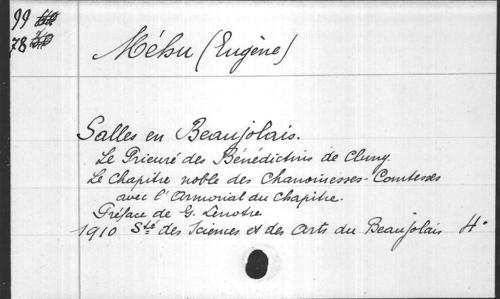 99
78
Méhu (Eugène)
Salles en Beaujolais.
Le Prieuré des Bénédictins de Cluny.
Le Chapitre noble des Chanoinesses-Comtesses
avec l'Armorial du Chapitre.
Préface de G. Lenotre
1910 Sté des Sciences et des Arts du Beaujolais 4°